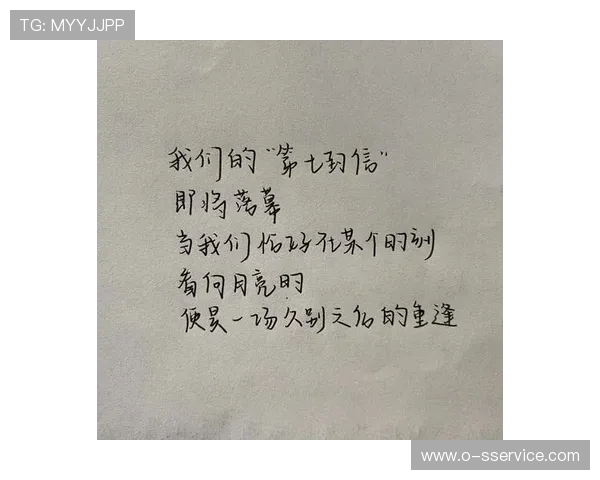 TG: MYYJJPP
我们的“第七封信”
即将落幕
当我们恰好在某个时刻
看向月亮时
便是一场久别之后的重逢
www.o-sservice.com